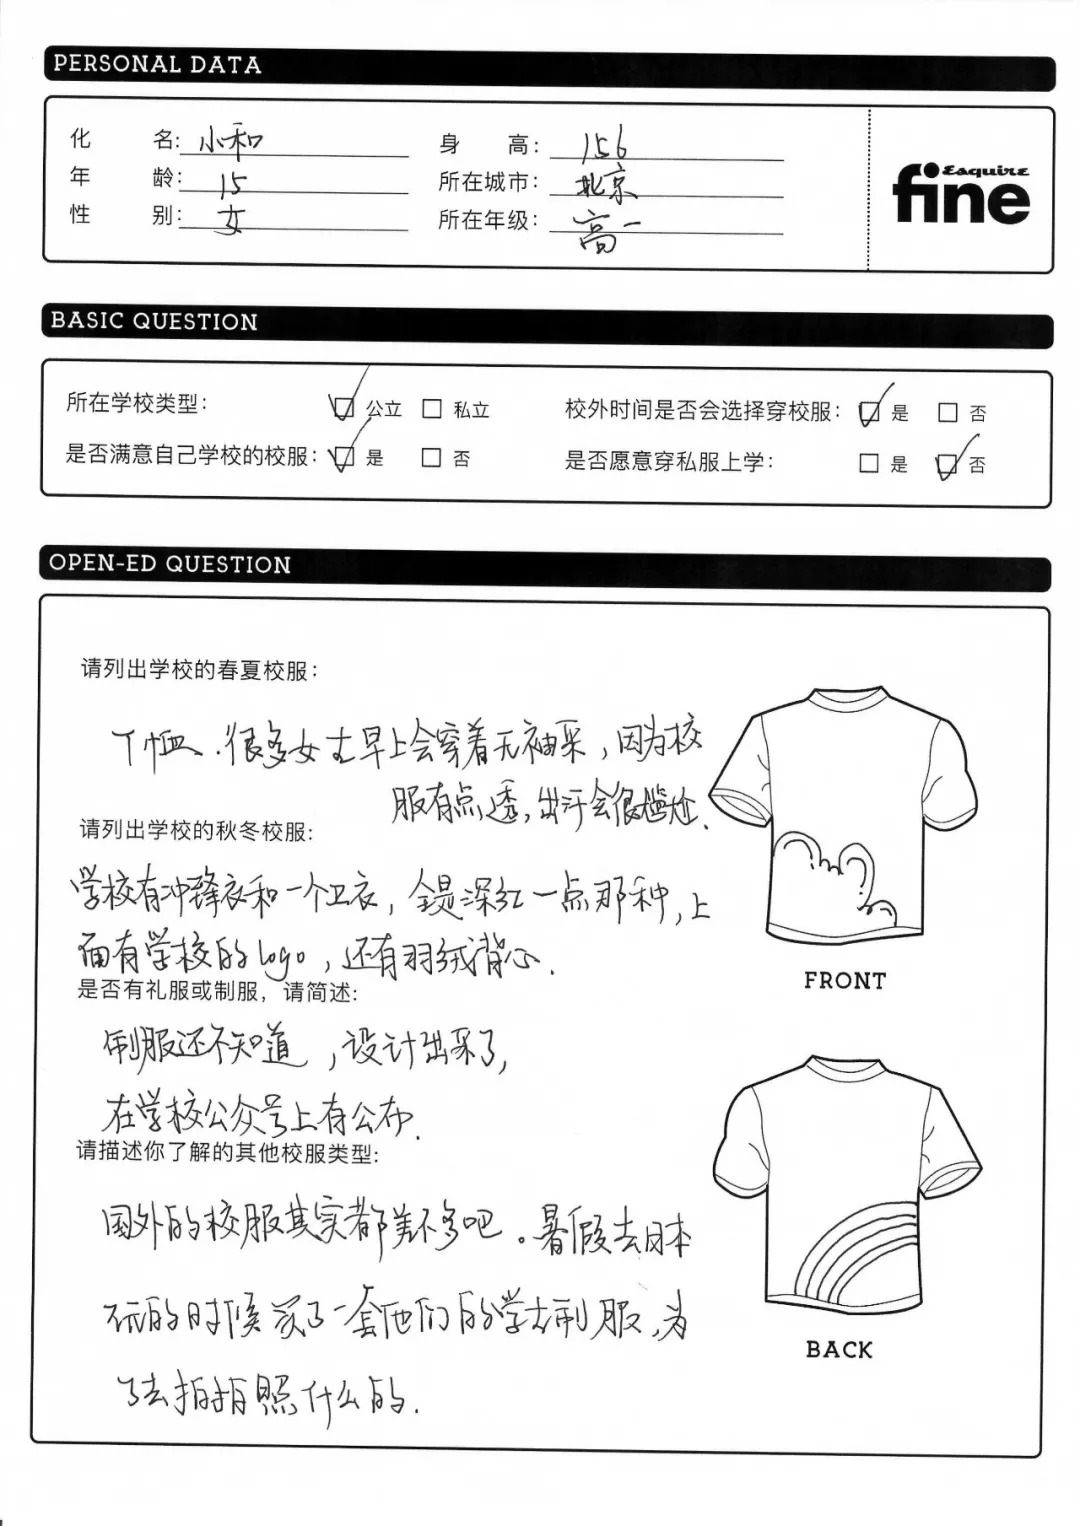 PERSONAL DATA
化 名: 小和 身 高: 156
年 龄: 15 所在城市: 北京
性 别: 女 所在年级: 高一
Esquire
fine
BASIC QUESTION
所在学校类型: 公立 私立 校外时间是否会选择穿校服: 是 否
是否满意自己学校的校服: 是 否 是否愿意穿私服上学: 是 否
OPEN-ED QUESTION
请列出学校的春夏校服:
T恤.很多女生早上会穿着无袖来,因为校
服有点透,出汗会很尴尬.
请列出学校的秋冬校服:
学校有冲锋衣和一个卫衣,全是深红一点那种,上
面有学校的logo,还有羽绒背心.
是否有礼服或制服,请简述:
制服还不知道,设计出来了,
在学校公众号上有公布.
请描述你了解的其他校服类型:
国外的校服其实都差不多吧。暑假去日本
玩的时候买了一套他们的学生制服,为
了去拍拍照什么的.
FRONT
BACK